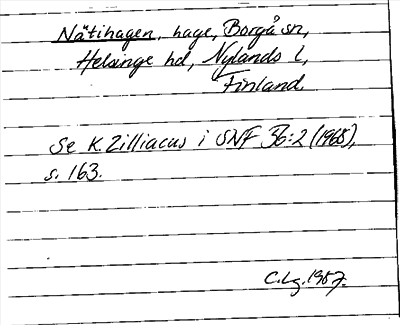 Nätihagen, hage, Borgå sn,
Helsinge hd, Nylands l,
Finland.
Se K. Zilliacus i SNF 56:2 (1968),
s. 163.
C. Lg. 1987.